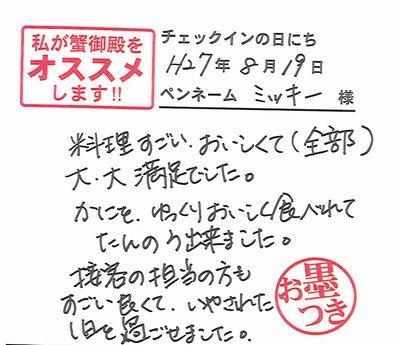 私が蟹御殿を
オススメ
します!!
チェックインの日にち
H27年 8月19日
ペンネーム ミッキー 様
料理すごい、おいしくて(全部)
大、大満足でした。
かにを、ゆっくりおいしく食べれて
たんのう出来ました。
接客の担当の方も
すごい良くて、いやされた
1日を過ごせました。
お墨つき